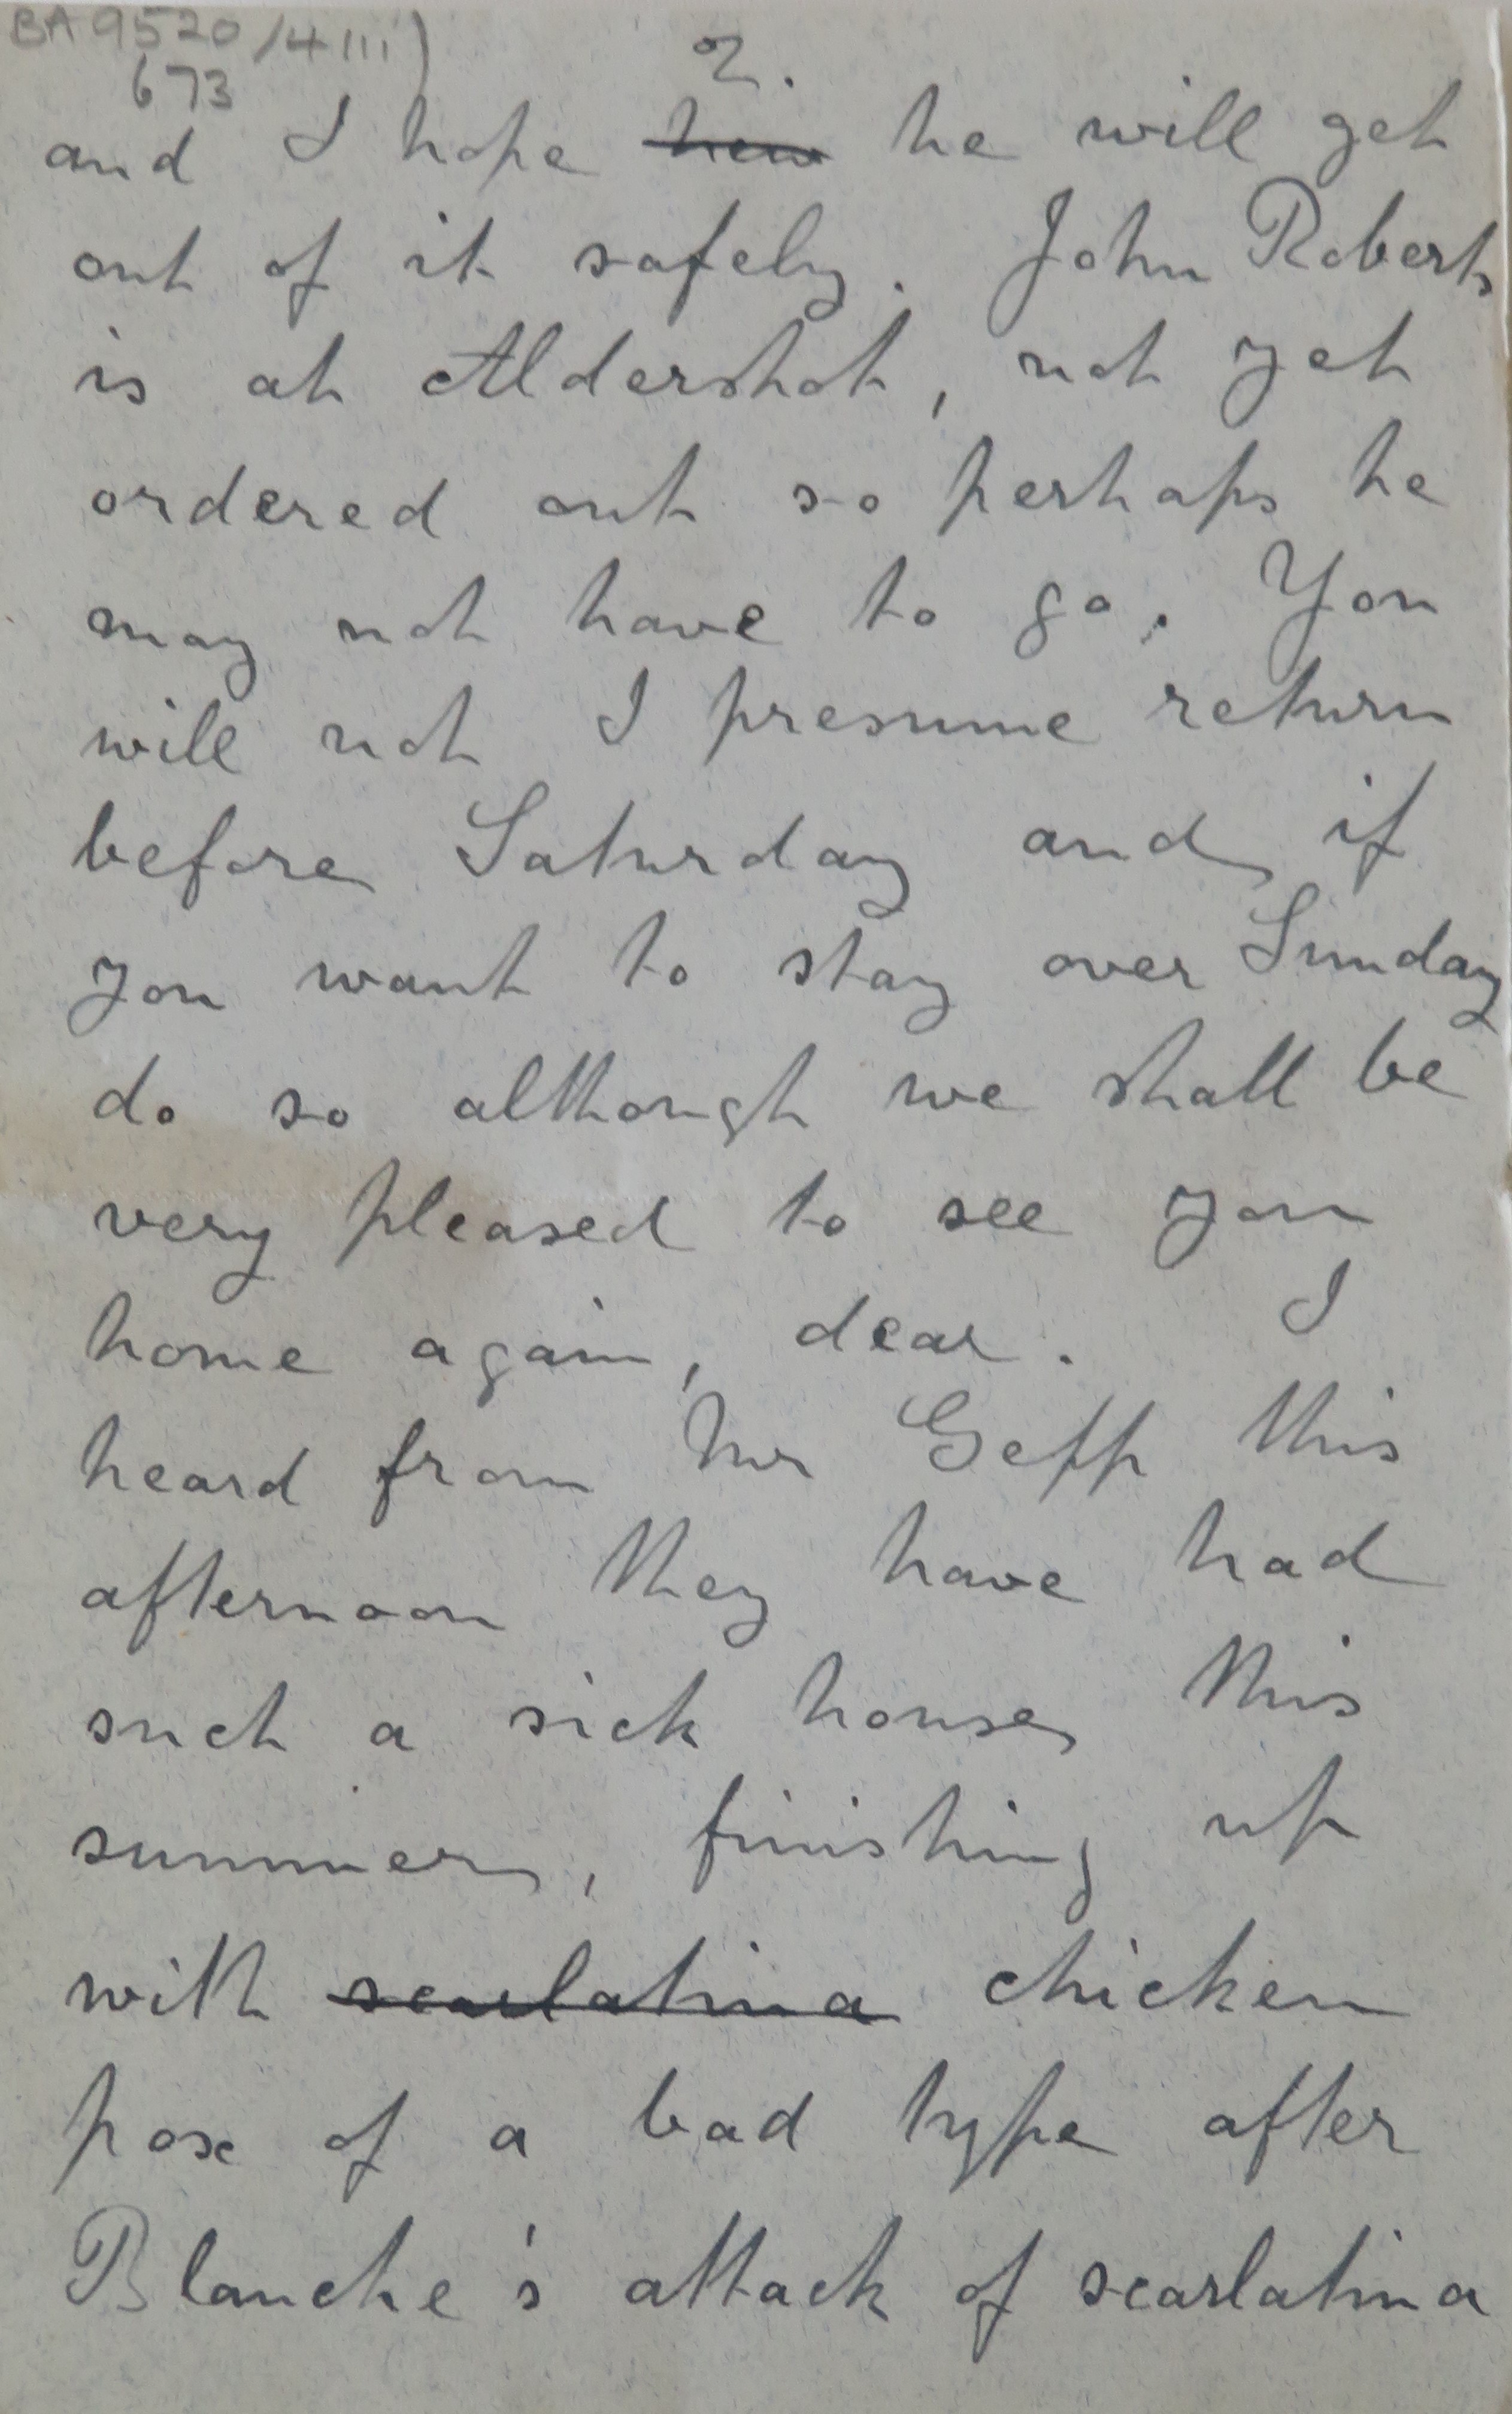 BA9520/4iii)
673
2.
and I hope how he will get
out of it safely. John Roberts
is at Aldershot, not yet
ordered out so perhaps he
may not have to go. You
will not I presume return
before Saturday and if
you want to stay over Sunday
do so although we shall be
very pleased to see you
home again, dear. I
heard from Mr Gepp this
afternoon they have had
such a sick house this
summer, finishing up
with scarlatina chicken
pox of a bad type after
Blanche's attack of scarlatina